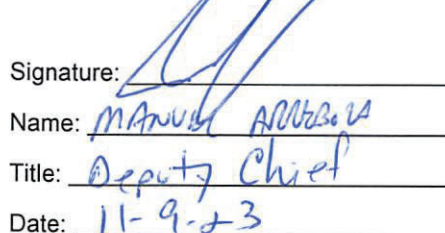 Signature:
Name: MANUEL ARREBOLA
Title: Deputy Chief
Date: 11-9-23